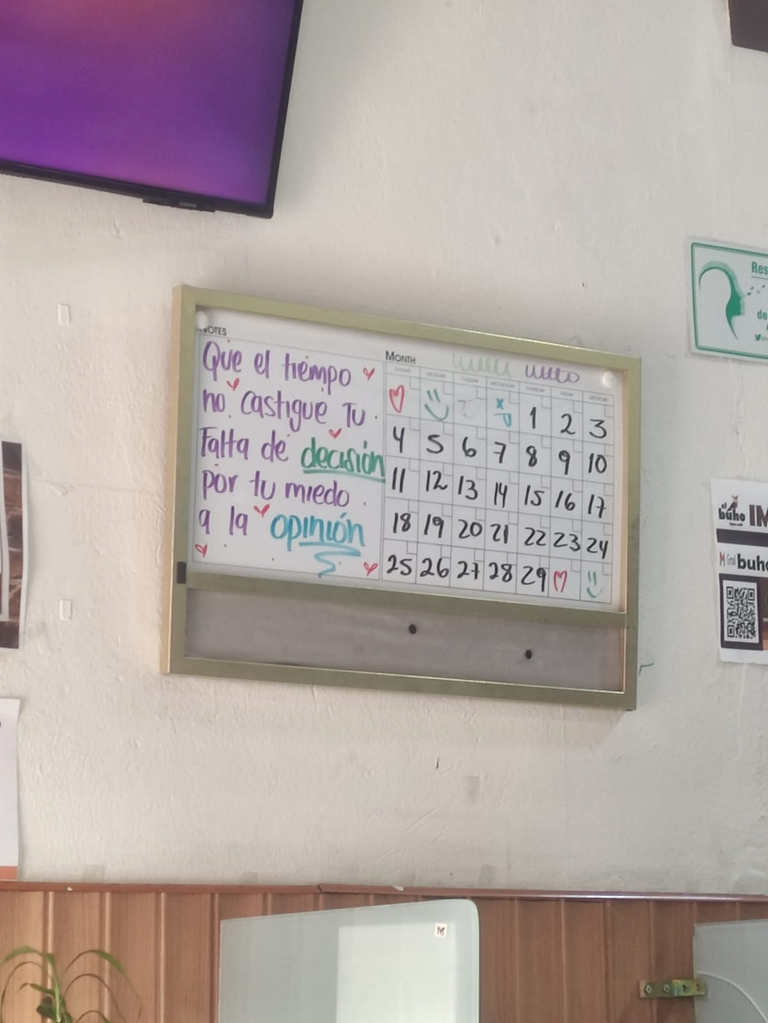 NOTES
Que el tiempo
no castigue Tu
Falta de decisión
por tu miedo
a la opinión
MONTH
1 2 3
4 5 6 7 8 9 10
11 12 13 14 15 16 17
18 19 20 21 22 23 24
25 26 27 28 29
Res
de
el
buho IM
buho
M